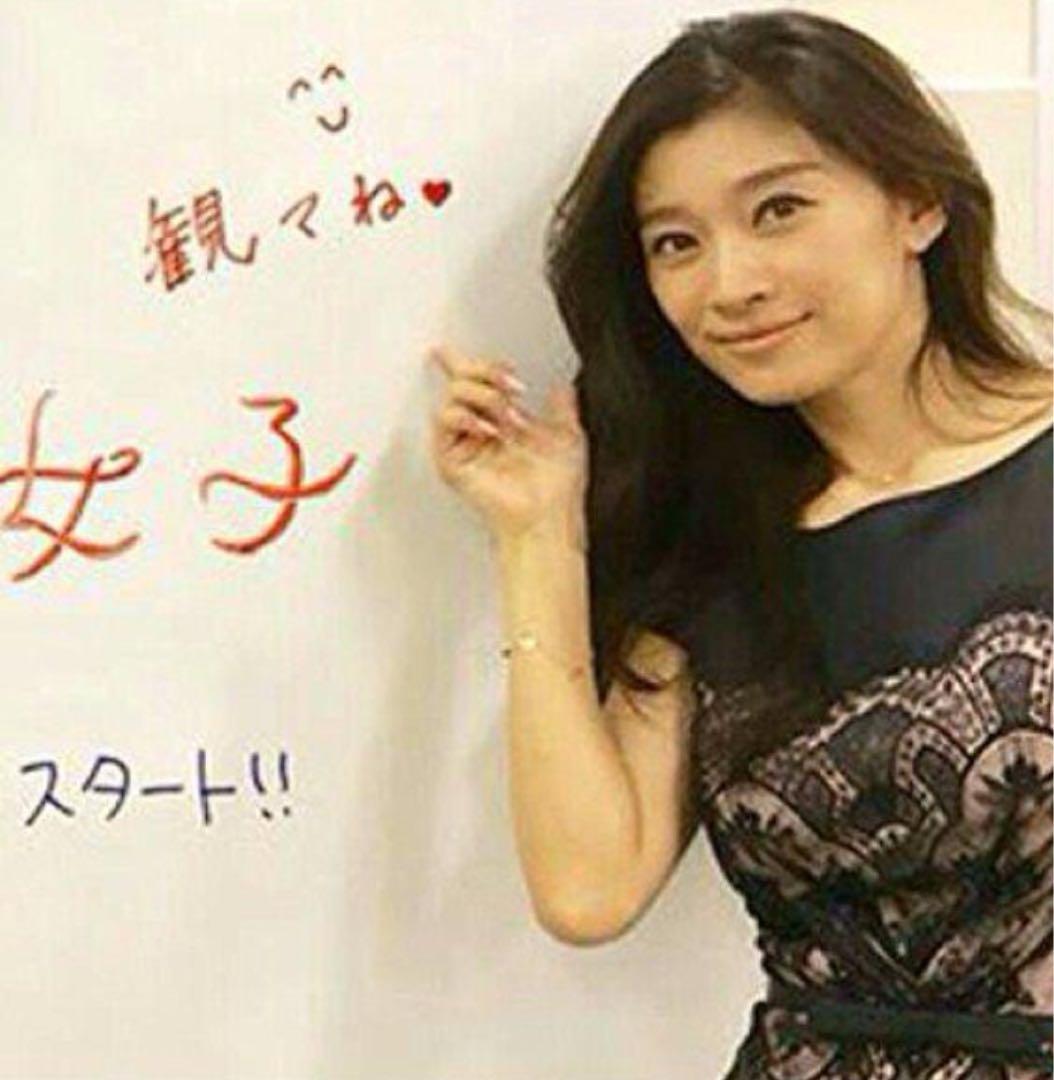 観てね♥
女子
スタート!!